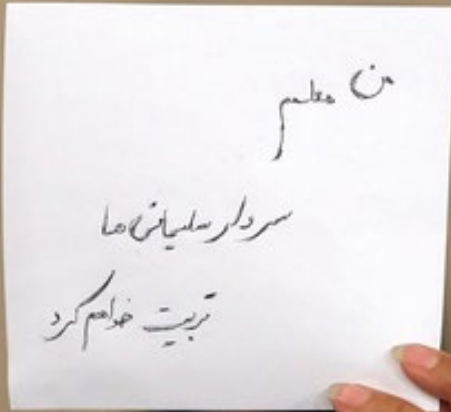 من معلمم
سردار سلیمانی ها
تربیت خواهم کرد